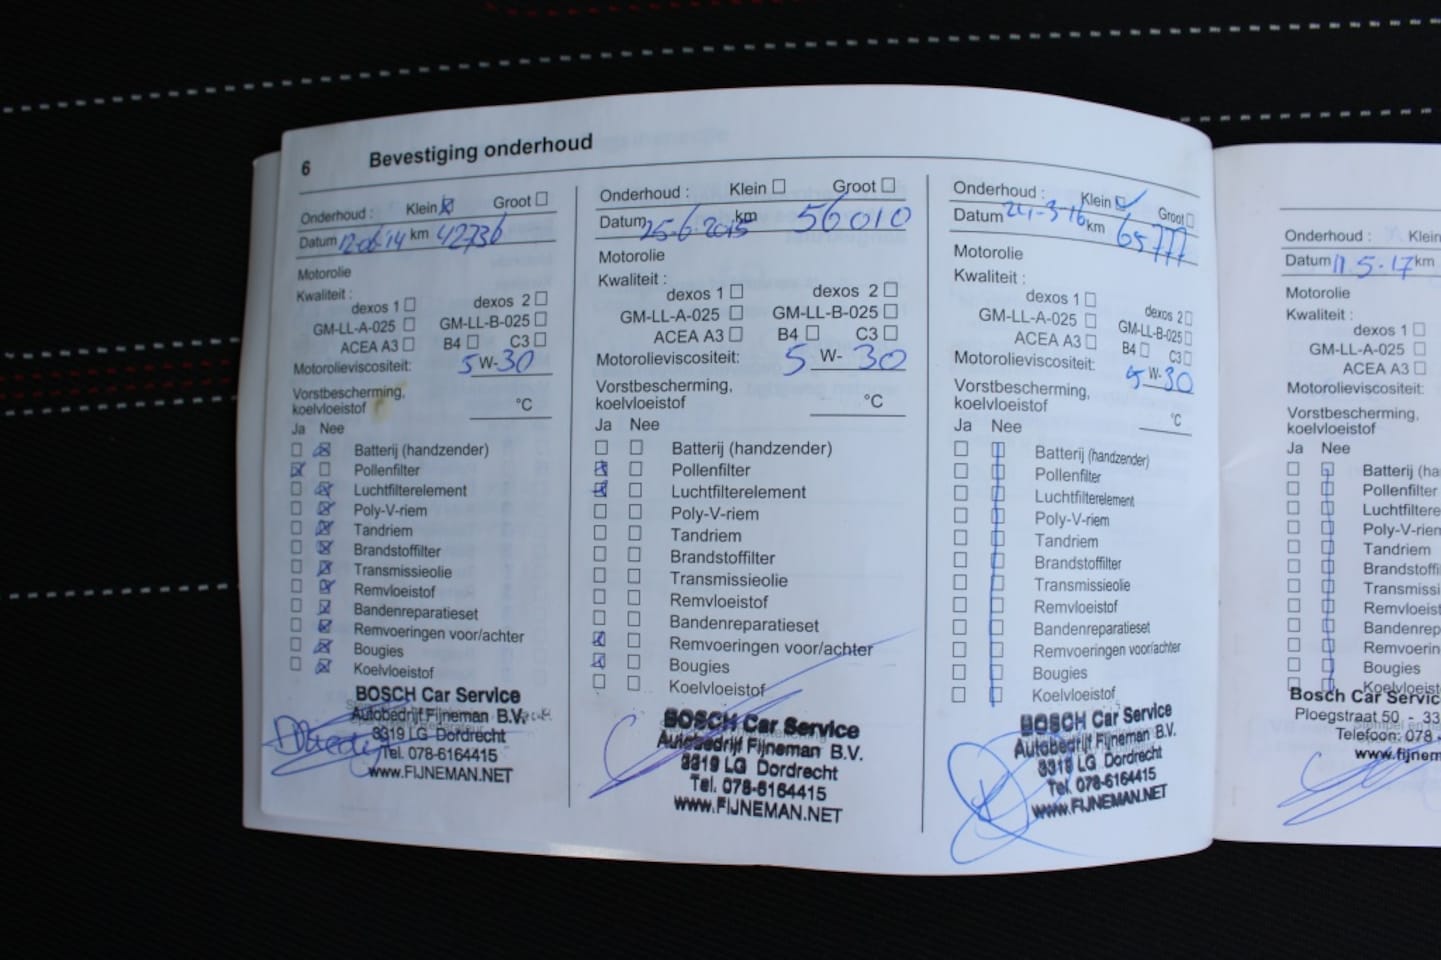 6 Bevestiging onderhoud
Onderhoud : Klein Groot
Datum 12-06-14 km 42736
Motorolie
Kwaliteit :
dexos 1 dexos 2
GM-LL-A-025 GM-LL-B-025
ACEA A3 B4 C3
Motorolieviscositeit: 5 W-30
Vorstbescherming,
koelvloeistof °C
Ja Nee
Batterij (handzender)
Pollenfilter
Luchtfilterelement
Poly-V-riem
Tandriem
Brandstoffilter
Transmissieolie
Remvloeistof
Bandenreparatieset
Remvoeringen voor/achter
Bougies
Koelvloeistof
BOSCH Car Service
Autobedrijf Fijneman B.V.
3319 LG Dordrecht
Tel. 078-6164415
www.FIJNEMAN.NET
Onderhoud : Klein Groot
Datum 25-6-2015 km 56010
Motorolie
Kwaliteit :
dexos 1 dexos 2
GM-LL-A-025 GM-LL-B-025
ACEA A3 B4 C3
Motorolieviscositeit: 5 W- 30
Vorstbescherming,
koelvloeistof °C
Ja Nee
Batterij (handzender)
Pollenfilter
Luchtfilterelement
Poly-V-riem
Tandriem
Brandstoffilter
Transmissieolie
Remvloeistof
Bandenreparatieset
Remvoeringen voor/achter
Bougies
Koelvloeistof
BOSCH Car Service
Autobedrijf Fijneman B.V.
3319 LG Dordrecht
Tel. 078-6164415
www.FIJNEMAN.NET
Onderhoud : Klein Groot
Datum 24-3-16 km 65777
Motorolie
Kwaliteit :
dexos 1 dexos 2
GM-LL-A-025 GM-LL-B-025
ACEA A3 B4 C3
Motorolieviscositeit: 5 W-30
Vorstbescherming,
koelvloeistof °C
Ja Nee
Batterij (handzender)
Pollenfilter
Luchtfilterelement
Poly-V-riem
Tandriem
Brandstoffilter
Transmissieolie
Remvloeistof
Bandenreparatieset
Remvoeringen voor/achter
Bougies
Koelvloeistof
BOSCH Car Service
Autobedrijf Fijneman B.V.
3319 LG Dordrecht
Tel. 078-6164415
www.FIJNEMAN.NET
Onderhoud : Klein
Datum 11-5-17 km
Motorolie
Kwaliteit :
dexos 1
GM-LL-A-025
ACEA A3
Motorolieviscositeit:
Vorstbescherming,
koelvloeistof
Ja Nee
Batterij (ha
Pollenfilter
Luchtfiltere
Poly-V-riem
Tandriem
Brandstoffi
Transmissi
Remvloeist
Bandenrep
Remvoerin
Bougies
Koelvloeist
Bosch Car Servic
Ploegstraat 50 - 33
Telefoon: 078 -
www.fijnem